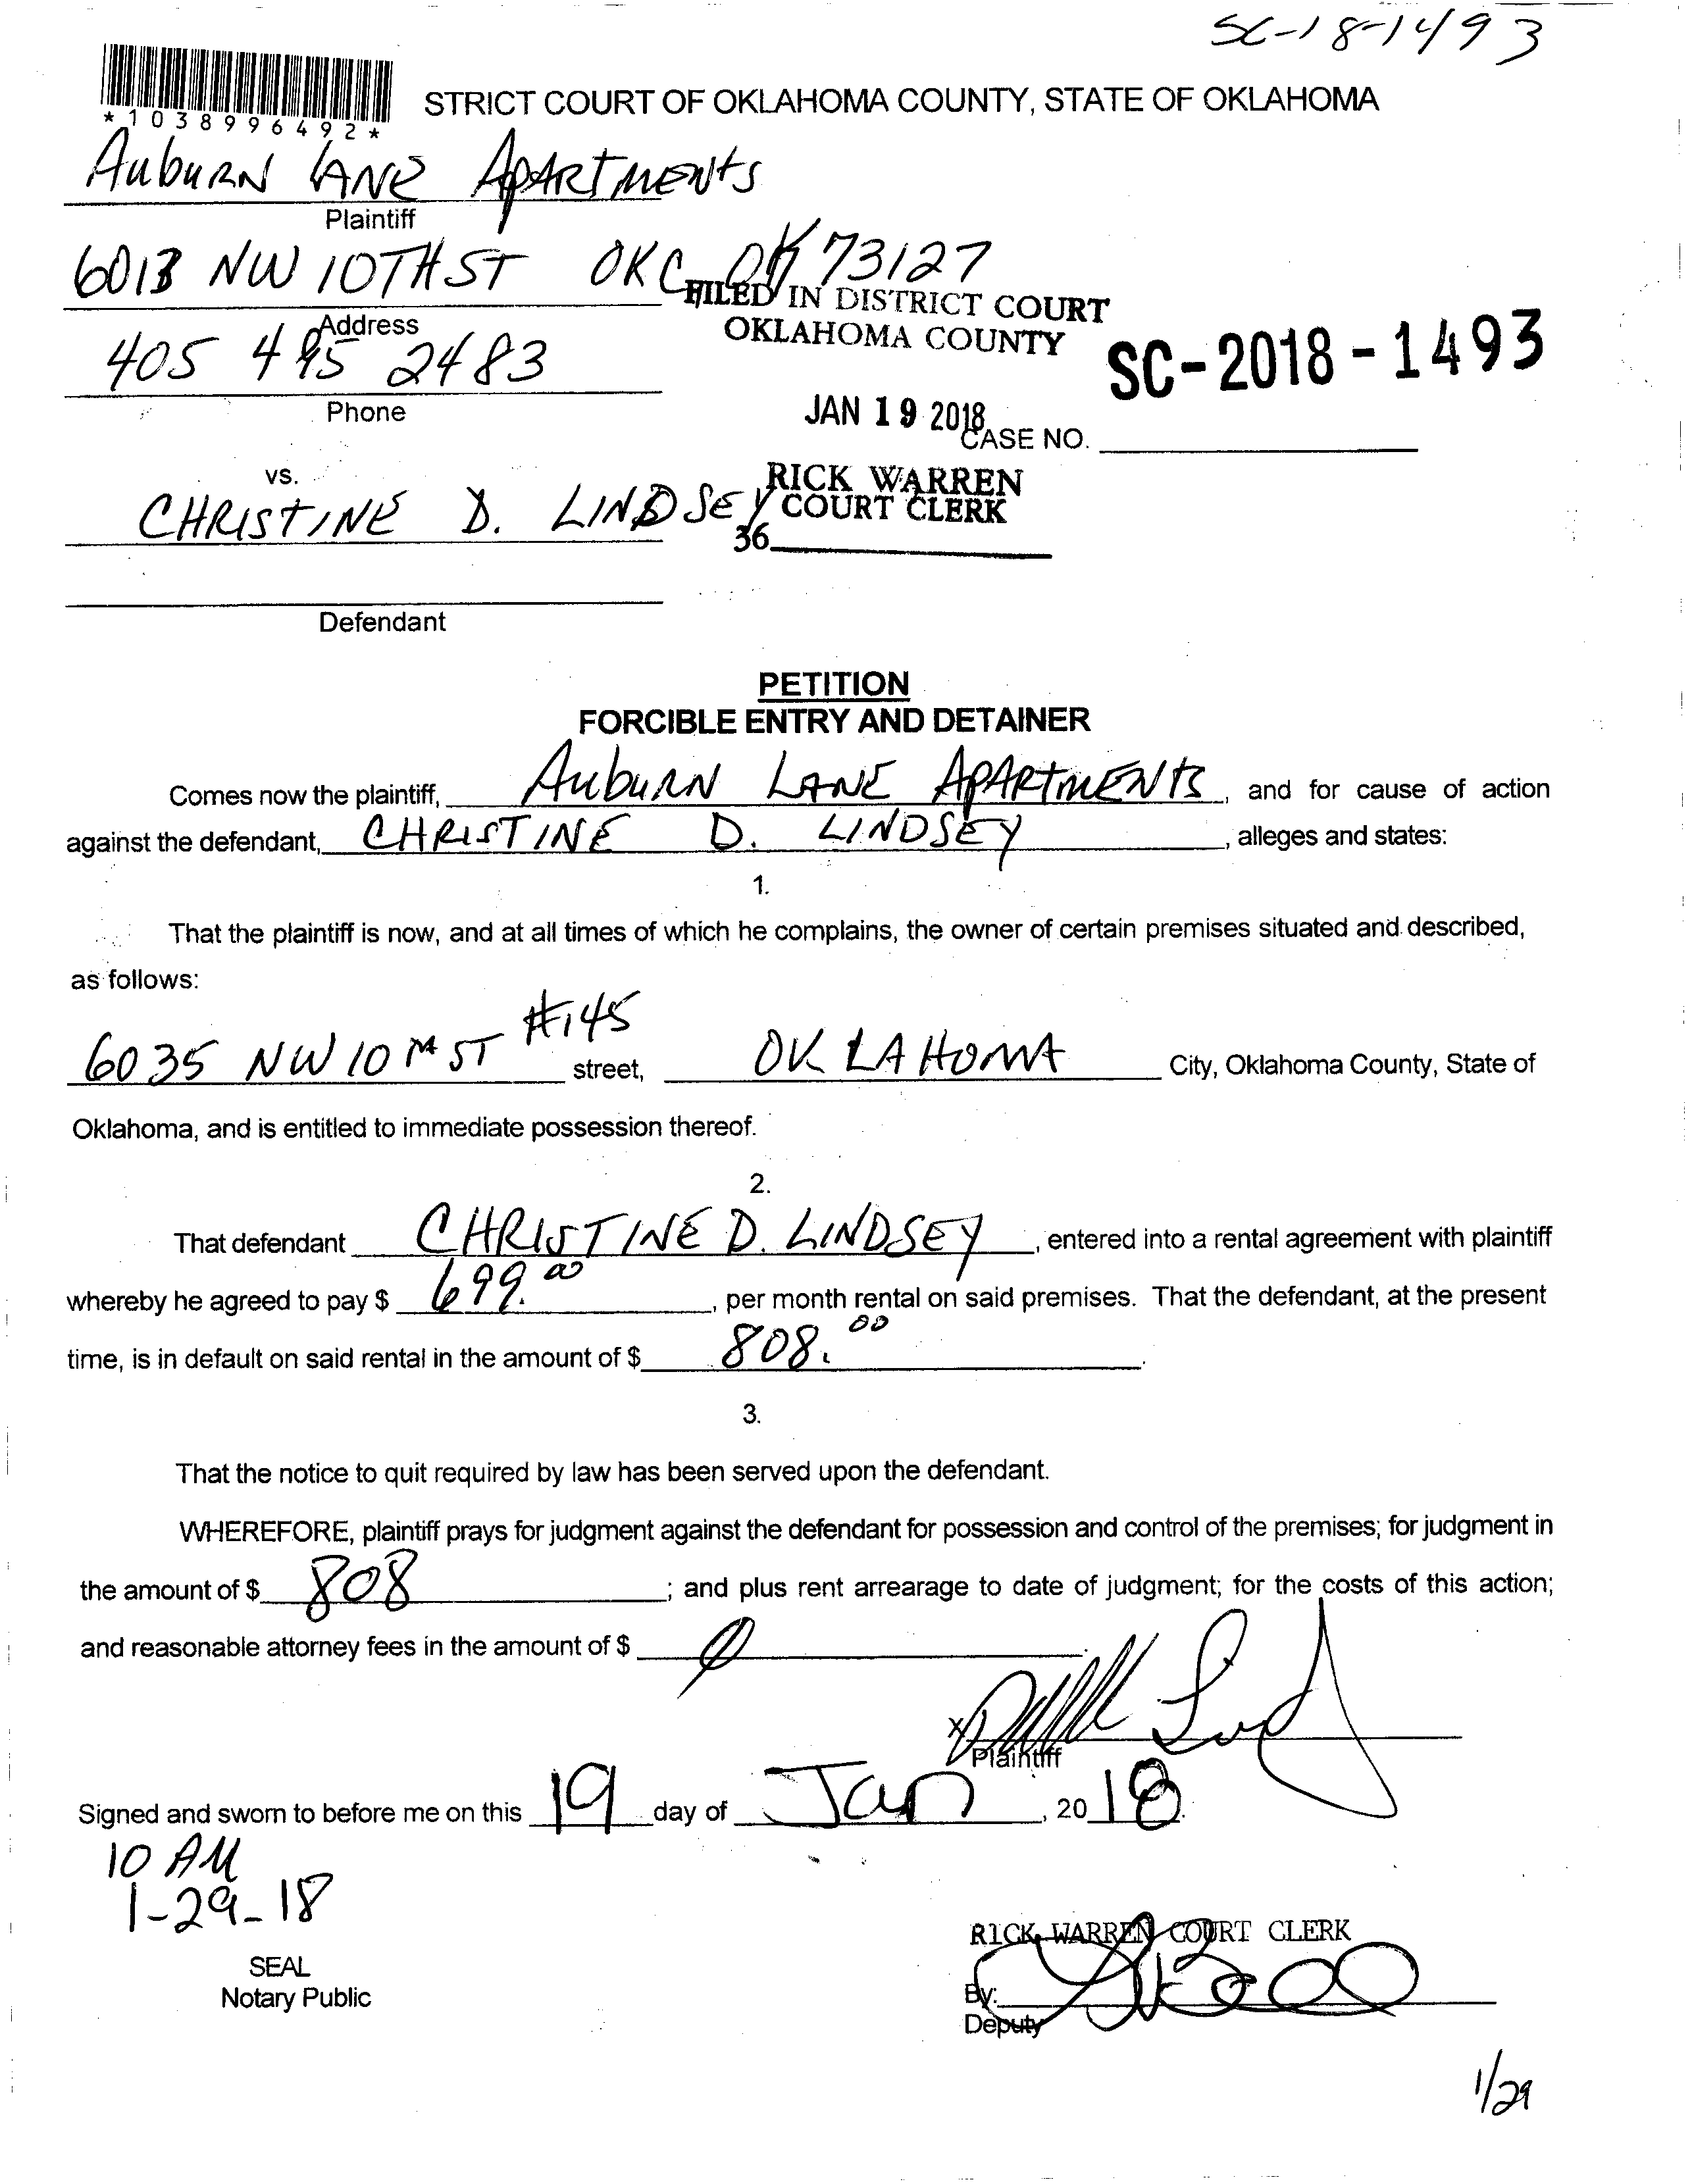 SC-18-1493
*1038996492*
STRICT COURT OF OKLAHOMA COUNTY, STATE OF OKLAHOMA
AubuRN LANE APARTMENTS
Plaintiff
6013 NW 10TH ST OKC OK 73127
FILED IN DISTRICT COURT
Address
OKLAHOMA COUNTY
405 495 2483
SC-2018-1493
Phone
JAN 19 2018
CASE NO.
vs.
RICK WARREN
CHRISTINE D. LINDSEY
COURT CLERK
36
Defendant
PETITION
FORCIBLE ENTRY AND DETAINER
Comes now the plaintiff, AubuRN LANE APARTMENTS, and for cause of action
against the defendant, CHRISTINE D. LINDSEY, alleges and states:
1.
That the plaintiff is now, and at all times of which he complains, the owner of certain premises situated and described,
as follows:
6035 NW 10TH ST #145 street, OKLAHOMA City, Oklahoma County, State of
Oklahoma, and is entitled to immediate possession thereof.
2.
That defendant CHRISTINE D. LINDSEY, entered into a rental agreement with plaintiff
whereby he agreed to pay $ 699.00, per month rental on said premises. That the defendant, at the present
time, is in default on said rental in the amount of $ 808.00.
3.
That the notice to quit required by law has been served upon the defendant.
WHEREFORE, plaintiff prays for judgment against the defendant for possession and control of the premises; for judgment in
the amount of $ 808; and plus rent arrearage to date of judgment; for the costs of this action;
and reasonable attorney fees in the amount of $ 0.
X
Plaintiff
Signed and sworn to before me on this 19 day of Jan, 2018.
10 AM
1-29-18
RICK WARREN COURT CLERK
SEAL
Notary Public
By:
Deputy
1/29